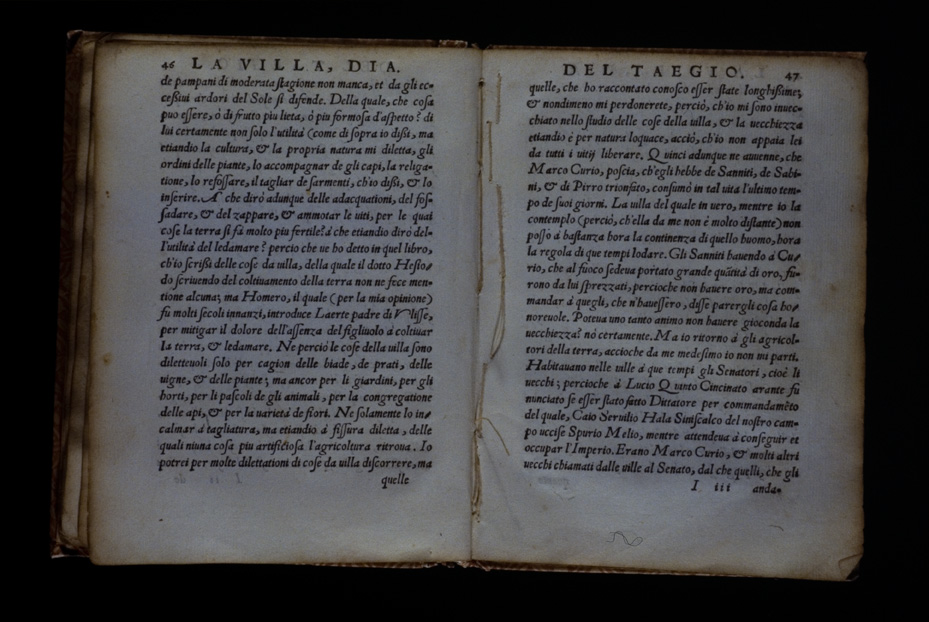 46 LA VILLA, DIA.
de pampani di moderata ſtagione non manca, et da gli ec=
ceßiui ardori del Sole ſi difende. Della quale, che coſa
puo eſſere, ò di frutto piu lieta, ò piu formoſa d'aſpetto? di
lui certamente non ſolo l'utilità (come di ſopra io dißi, ma
etiandio la cultura, & la propria natura mi diletta, gli
ordini delle piante, lo accompagnar de gli capi, la religa=
tione, lo refoſſare, il tagliar de ſarmenti, ch'io dißi, & lo
inſerire. A che dirò adunque delle adacquationi, del foſ=
ſadare, & del zappare, & ammotar le uiti, per le quai
coſe la terra ſi fà molto piu fertile? à che etiandio dirò del=
l'utilità del ledamare? percio che ue ho detto in quel libro,
ch'io ſcrißi delle coſe da uilla, della quale il dotto Heſio=
do ſcriuendo del coltiuamento della terra non ne fece men=
tione alcuna; ma Homero, il quale (per la mia opinione)
fù molti ſecoli innanzi, introduce Laerte padre di Vliſſe,
per mitigar il dolore dell'aſſenza del figliuolo à coltiuar
la terra, & ledamare. Ne perciò le coſe della uilla ſono
diletteuoli ſolo per cagion delle biade, de prati, delle
uigne, & delle piante; ma ancor per li giardini, per gli
horti, per li paſcoli de gli animali, per la congregatione
delle api, & per la uarietà de fiori. Ne ſolamente lo in=
calmar à tagliatura, ma etiandio à fiſſura diletta, delle
quali niuna coſa piu artificioſa l'agricoltura ritroua. Io
potrei per molte dilettationi di coſe da uilla diſcorrere, ma
quelle
DEL TAEGIO. 47
quelle, che ho raccontato conoſco eſſer ſtate longhißime;
& nondimeno mi perdonerete, perciò, ch'io mi ſono inuec=
chiato nello ſtudio delle coſe della uilla, & la uecchiezza
etiandio è per natura loquace, acciò, ch'io non appaia lei
da tutti i uitij liberare. Quinci adunque ne auuenne, che
Marco Curio, poſcia, ch'egli hebbe de Sanniti, de Sabi=
ni, & di Pirro trionfato, conſumò in tal uita l'ultimo tem=
po de ſuoi giorni. La uilla del quale in uero, mentre io la
contemplo (perciò, ch'ella da me non è molto diſtante) non
poſſo à baſtanza hora la continenza di quello huomo, hora
la regola di que tempi lodare. Gli Sanniti hauendo à Cu=
rio, che al fuoco ſedeua portato grande quãtità di oro, fu=
rono da lui ſprezzati, percioche non hauere oro, ma com=
mandar à quegli, che n'haueſſero, diſſe parergli coſa ho=
noreuole. Poteua uno tanto animo non hauere gioconda la
uecchiezza? nò certamente. Ma io ritorno à gli agricol=
tori della terra, accioche da me medeſimo io non mi parti.
Habitauano nelle uille à que tempi gli Senatori, cioè li
uecchi; percioche à Lucio Quinto Cincinato arante fù
nunciato ſe eſſer ſtato fatto Dittatore per commandamẽto
del quale, Caio Seruilio Hala Siniſcalco del noſtro cam=
po ucciſe Spurio Melio, mentre attendeua à conſeguir et
occupar l'Imperio. Erano Marco Curio, & molti altri
uecchi chiamati dalle uille al Senato, dal che quelli, che gli
I iii anda=